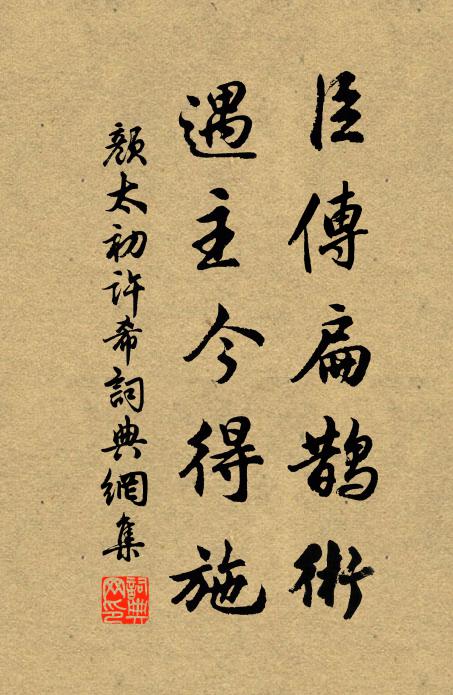 臣傳扁鵲術
遇主今得施
顏太初許希詞典網集
詞典网印